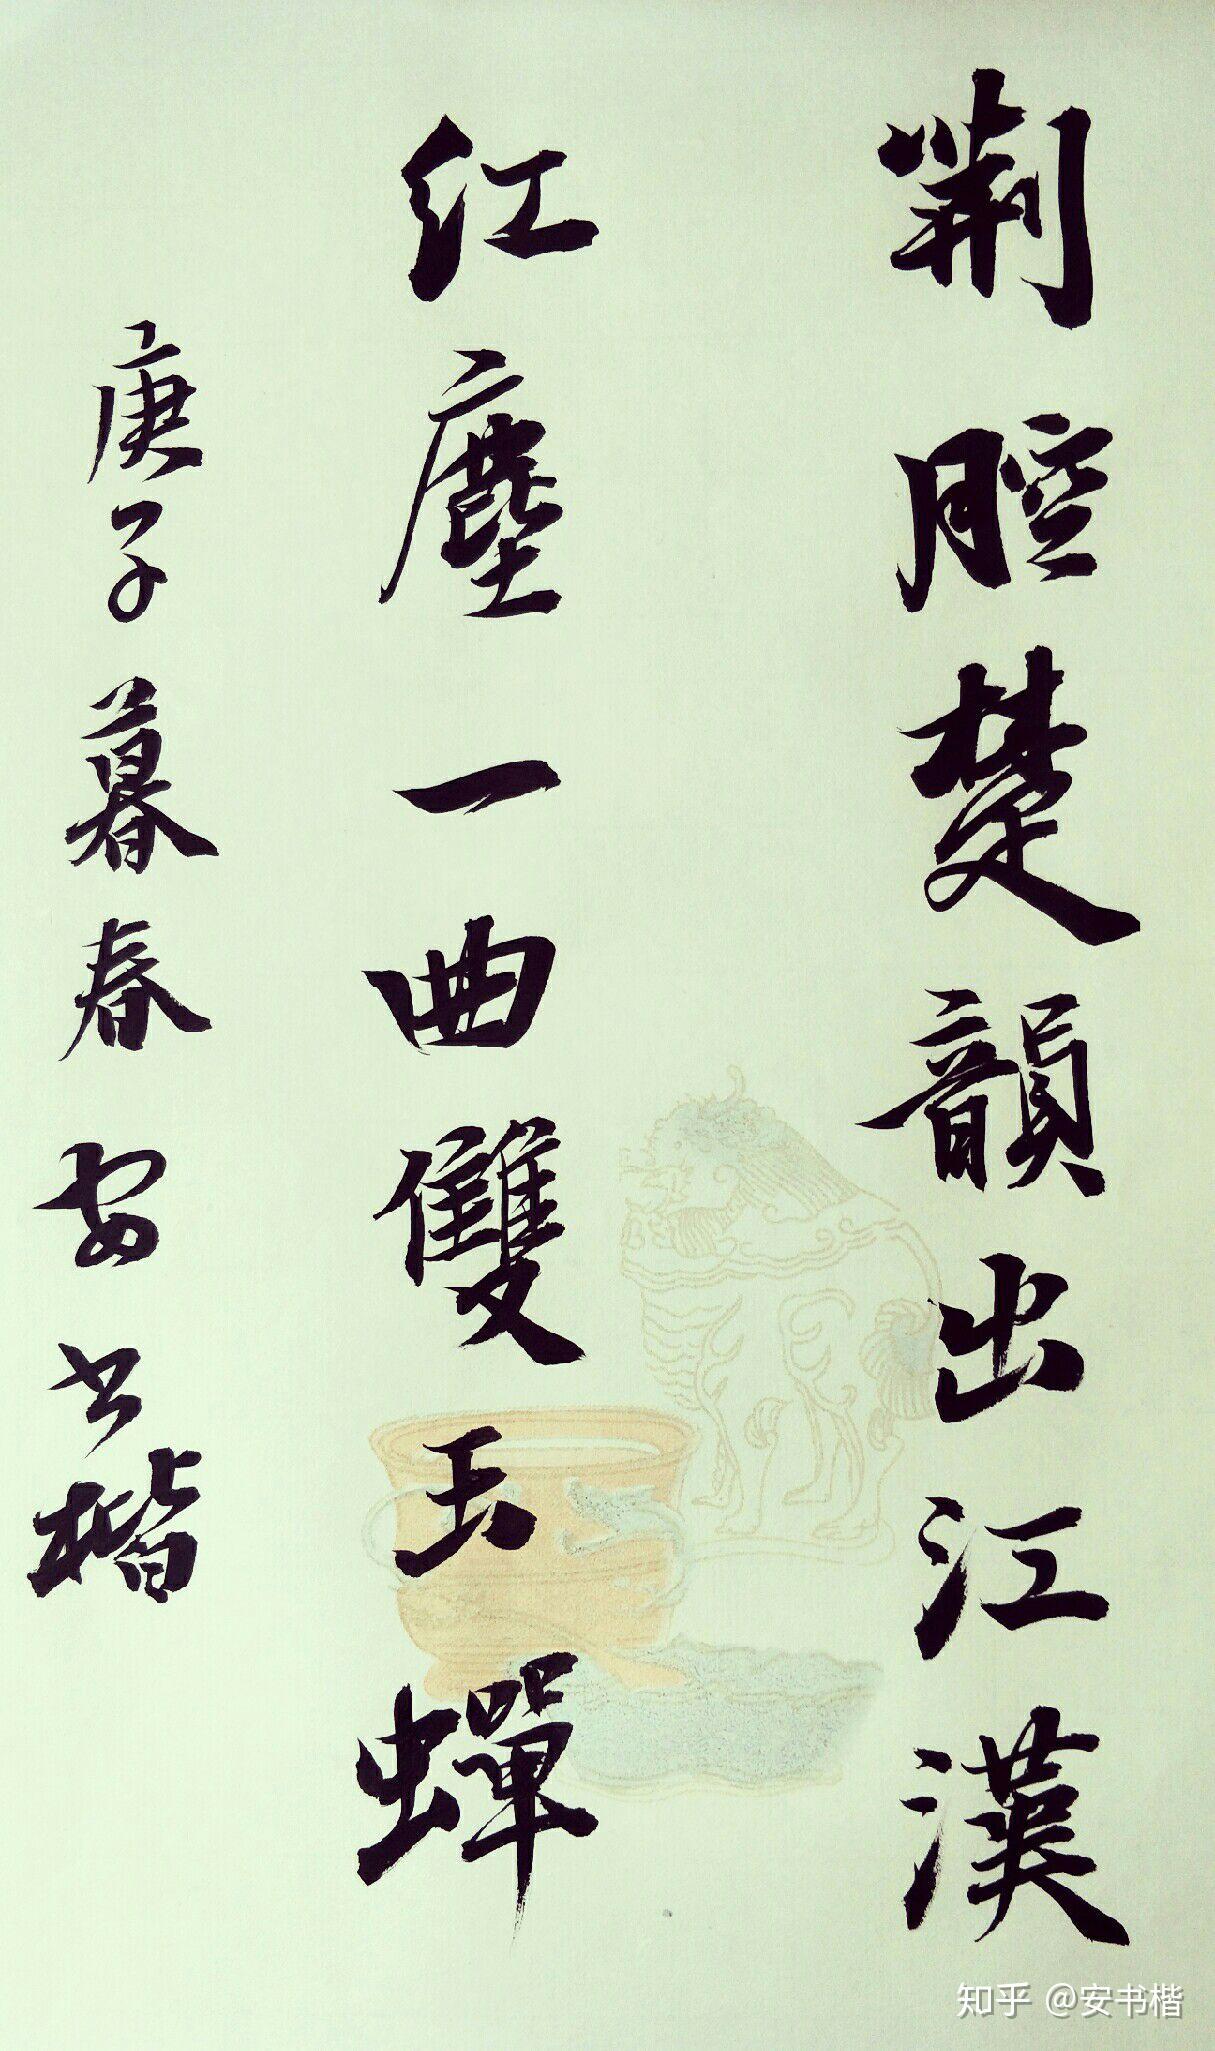 荆腔楚韻出江漢
紅塵一曲雙玉蟬
庚子暮春安书楷
知乎 @安书楷